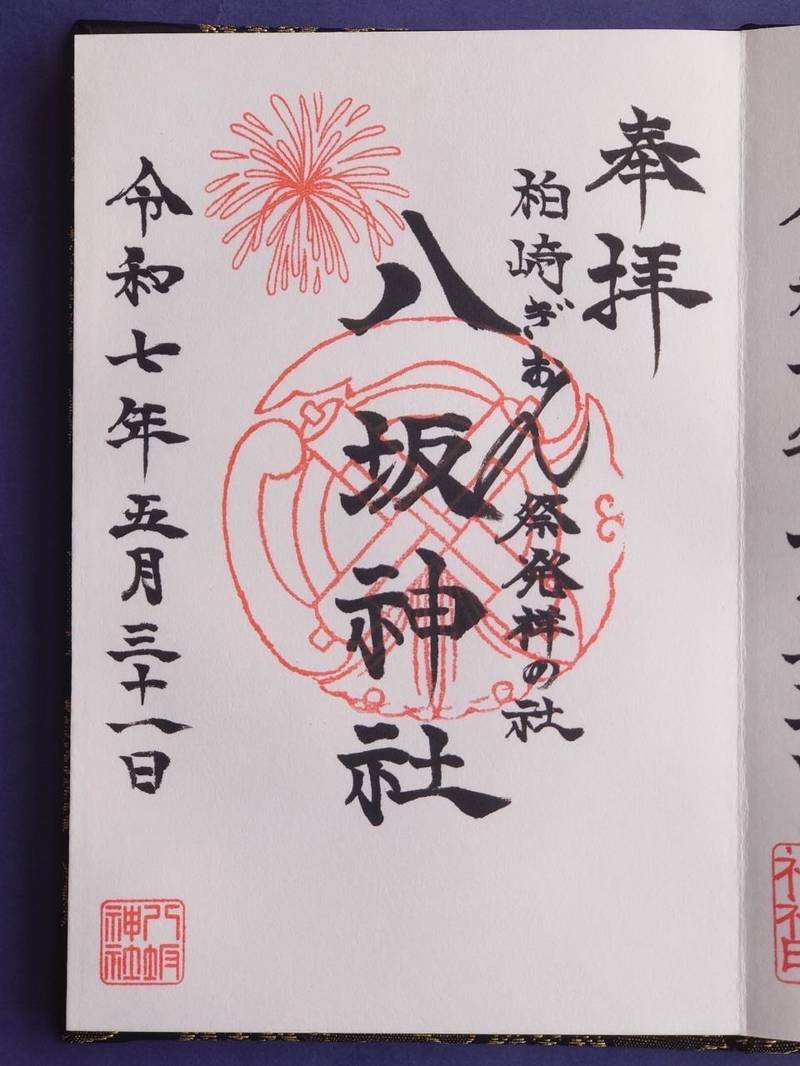 奉拝
柏崎ぎおん祭発祥の社
八坂神社
令和七年五月三十一日
八坂神社